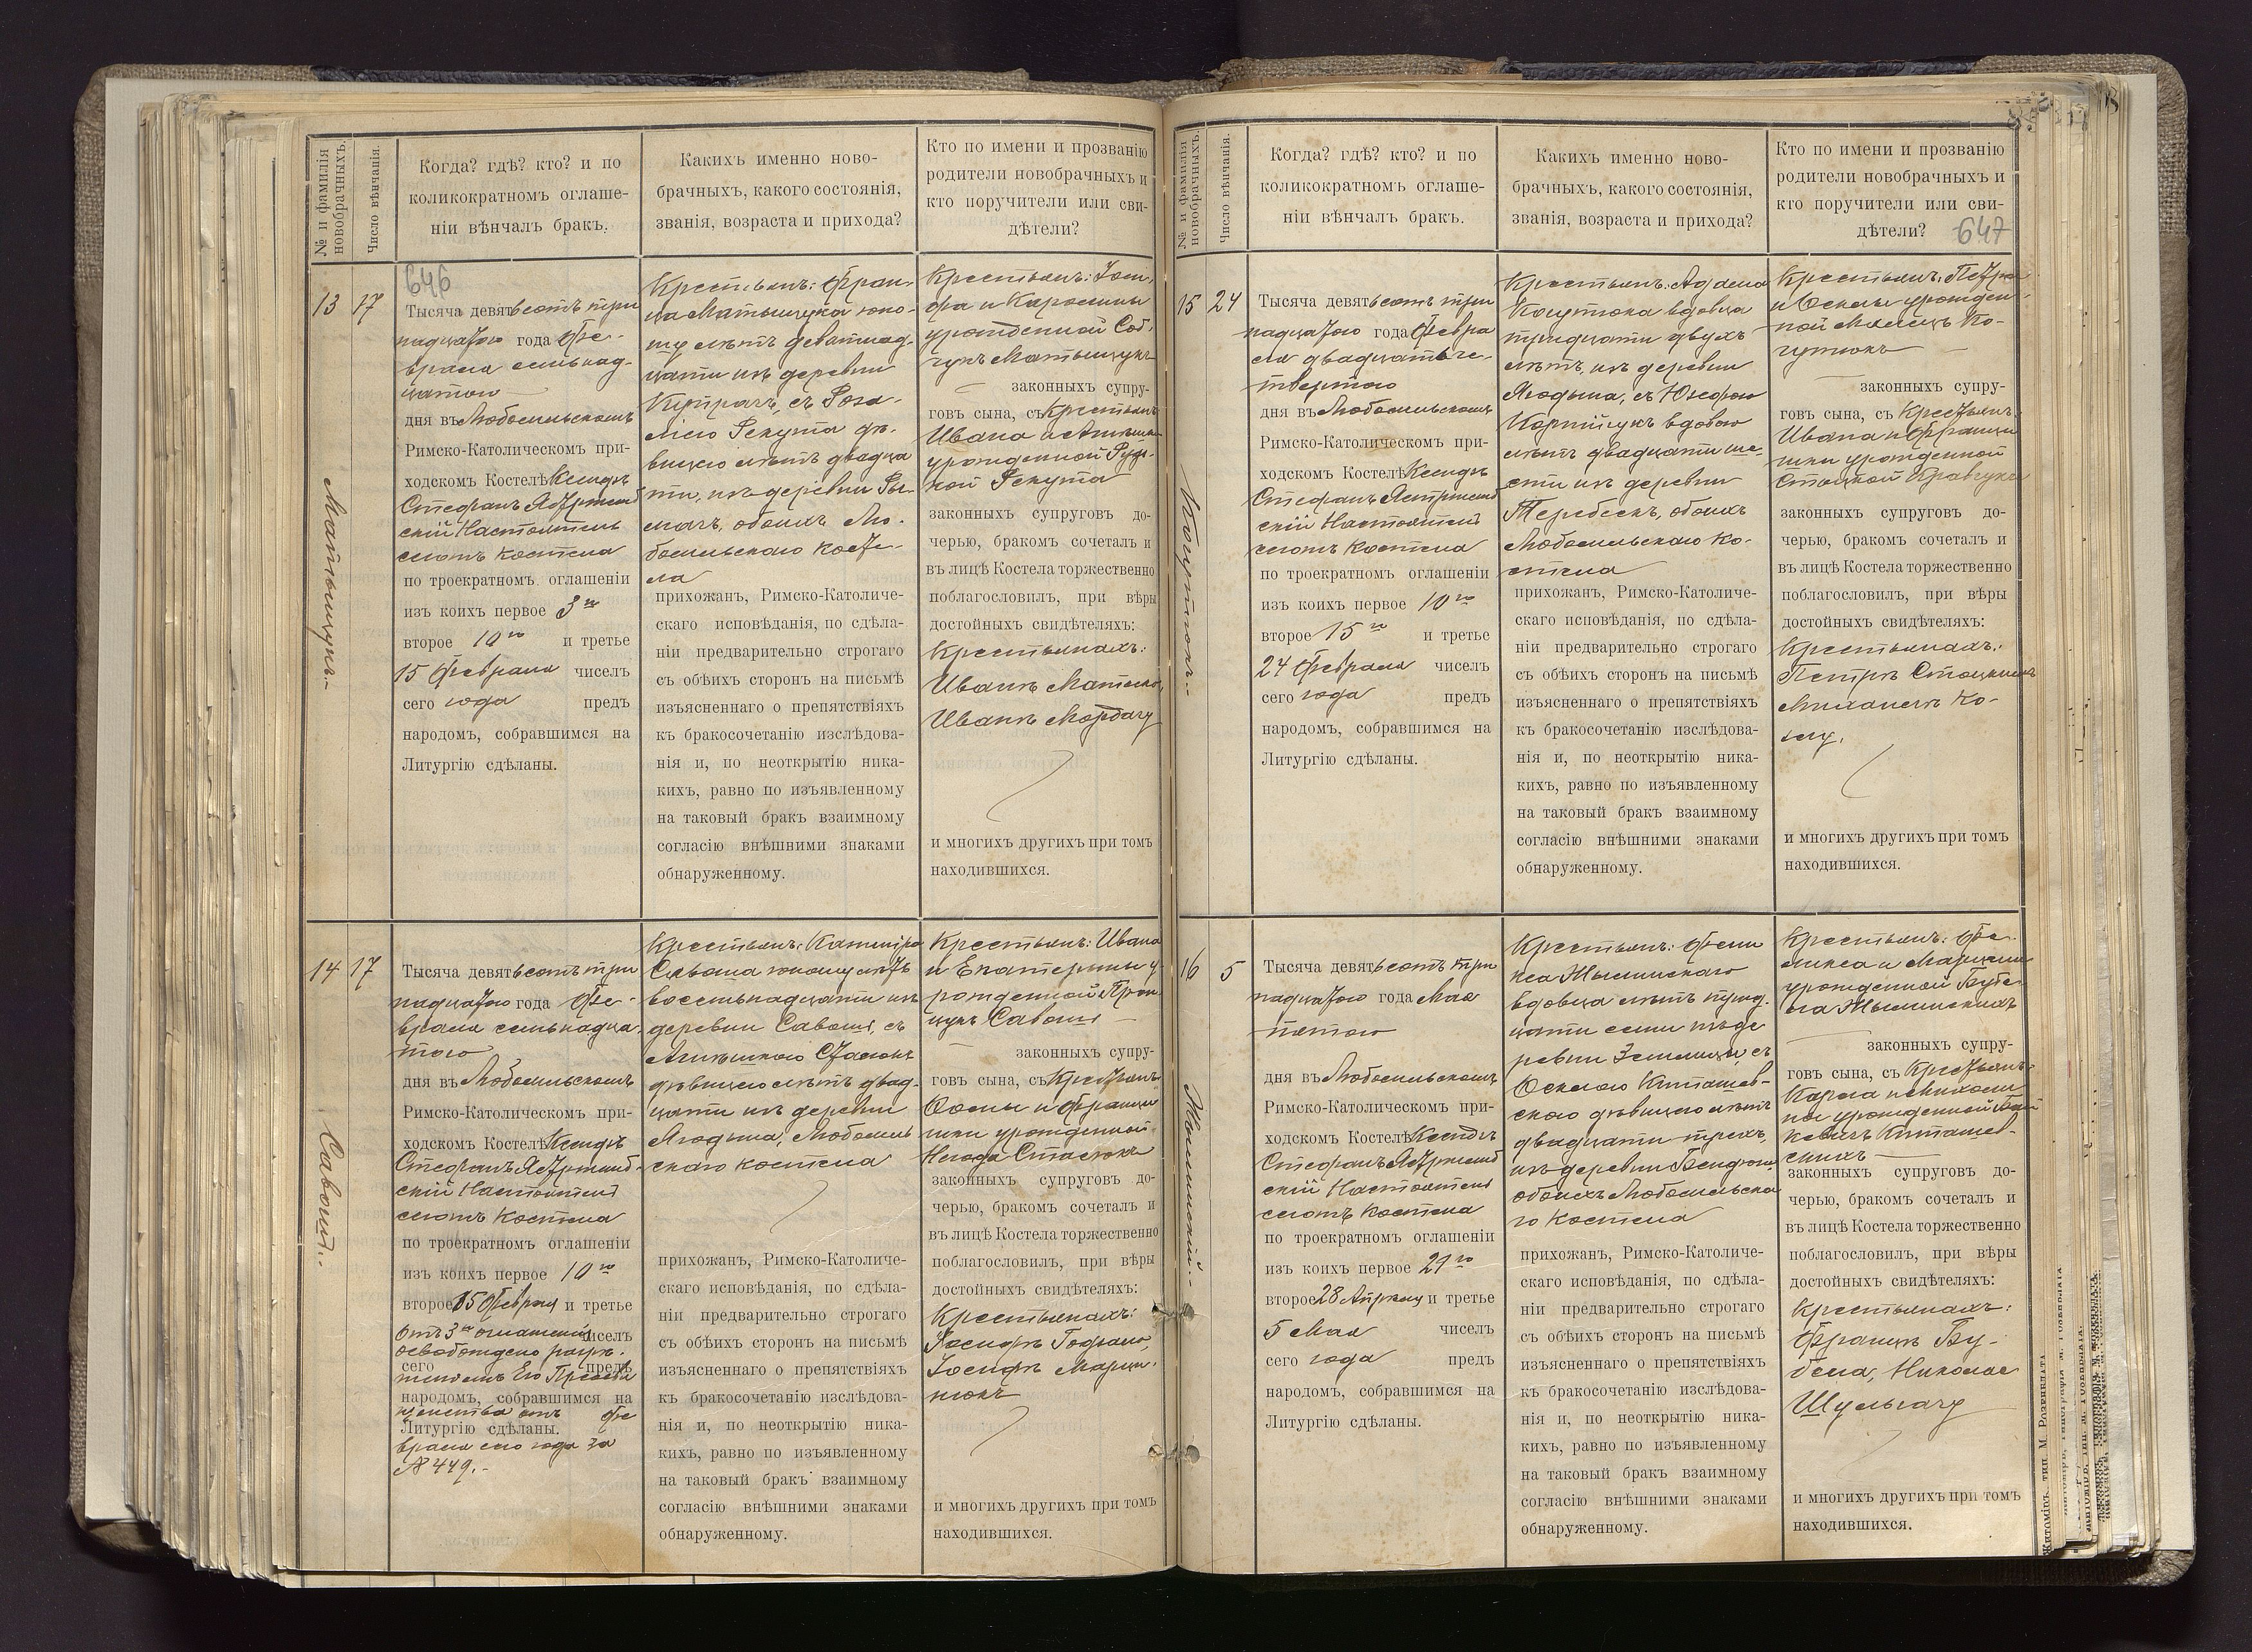 № и фамилія новобрачныхъ.
Число вѣнчанія.
Когда? гдѣ? кто? и по
коликократномъ оглаше-
ніи вѣнчалъ бракъ.
Какихъ именно ново-
брачныхъ, какого состоянія,
званія, возраста и прихода?
Кто по имени и прозванію
родители новобрачныхъ и
кто поручители или сви-
дѣтели?
646
13
17
Матыщукъ.-
Тысяча девятьсотъ три
надцатого года Фе-
враля семьнад-
цатого
дня въ Любомльскомъ
Римско-Католическомъ при-
ходскомъ Костелѣ Ксендзъ
Стефанъ Ястржемб
скій Настоятель
сего Костела
по троекратномъ оглашеніи
изъ коихъ первое 3го
второе 10го и третье
15 Февраля чиселъ
сего года предъ
народомъ, собравшимся на
Литургію сдѣланы.
Крестьянъ: Фран-
ца Матыщука юно-
шу лѣтъ девятнад-
цати изъ деревни
съ Роза-
ліею Рекута дѣ-
вицею лѣтъ двадца
ти, изъ деревни
обоихъ Лю-
бомльскаго Косте-
ла
прихожанъ, Римско-Католиче-
скаго исповѣданія, по сдѣла-
ніи предварительно строгаго
съ обѣихъ сторонъ на письмѣ
изъясненнаго о препятствіяхъ
къ бракосочетанію изслѣдова-
нія и, по неоткрытію ника-
кихъ, равно по изъявленному
на таковый бракъ взаимному
согласію внѣшними знаками
обнаруженному.
Крестьянъ: Іоси-
фа и Каролины
урожденной
Матыщукъ
законныхъ супру-
говъ сына, съ Крестьянъ
Ивана и
урожденной
Рекута
законныхъ супруговъ до-
черью, бракомъ сочеталъ и
въ лицѣ Костела торжественно
поблагословилъ, при вѣры
достойныхъ свидѣтеляхъ:
Крестьянахъ:
Иванъ
Иванъ Мордачу
и многихъ другихъ при томъ
находившихся.
14
17
Савош.-
Тысяча девятьсотъ три
надцатого года Фе-
враля семьнадца-
того
дня въ Любомльскомъ
Римско-Католическомъ при-
ходскомъ Костелѣ Ксендзъ
Стефанъ Ястржемб-
скій Настоятель
сего Костела
по троекратномъ оглашеніи
изъ коихъ первое 10го
второе 15 Февраля и третье
отъ 3го оглашенія чиселъ
освобождено разрѣ-
сего предъ
шеніемъ Его Превосхо
народомъ, собравшимся на
отъ Фе
Литургію сдѣланы.
враля сего года за
№ 449.-
Крестьянъ: Казимира
Савоша юношу лѣтъ
восемьнадцати изъ
деревни Савоши, съ
Агнѣшкою Стасюкъ
дѣвицею лѣтъ двад-
цати изъ деревни
Ягодына, Любомль
скаго костела
прихожанъ, Римско-Католиче-
скаго исповѣданія, по сдѣла-
ніи предварительно строгаго
съ обѣихъ сторонъ на письмѣ
изъясненнаго о препятствіяхъ
къ бракосочетанію изслѣдова-
нія и, по неоткрытію ника-
кихъ, равно по изъявленному
на таковый бракъ взаимному
согласію внѣшними знаками
обнаруженному.
Крестьянъ: Ивана
и Екатерины у
рожденной
Савош
законныхъ супру-
говъ сына, съ Крестьянъ
и Францѣ
шки урожденной
Стасюкъ
законныхъ супруговъ до-
черью, бракомъ сочеталъ и
въ лицѣ Костела торжественно
поблагословилъ, при вѣры
достойныхъ свидѣтеляхъ:
Крестьянахъ:
Іосифъ
Іосифъ Марци-
нюкъ
и многихъ другихъ при томъ
находившихся.
№ и фамилія новобрачныхъ.
Число вѣнчанія.
Когда? гдѣ? кто? и по
коликократномъ оглаше-
ніи вѣнчалъ бракъ.
Какихъ именно ново-
брачныхъ, какого состоянія,
званія, возраста и прихода?
Кто по имени и прозванію
родители новобрачныхъ и
кто поручители или сви-
дѣтели?
647
15
24
Когутюкъ.-
Тысяча девятьсотъ три
надцатого года Февра
ля двадцать че-
твертого
дня въ Любомльскомъ
Римско-Католическомъ при-
ходскомъ Костелѣ Ксендзъ
Стефанъ Ястржемб
скій Настоятель
сего Костела
по троекратномъ оглашеніи
изъ коихъ первое 10го
второе 15го и третье
24 Февраля чиселъ
сего года предъ
народомъ, собравшимся на
Литургію сдѣланы.
Крестьянъ: Адама
Когутюка вдовца
тридцати двухъ
лѣтъ, изъ деревни
Ягодына, съ Юзефою
Корнійчукъ вдовою
лѣтъ двадцати ше-
сти изъ деревни
Теребеекъ, обоихъ
Любомльскаго Ко-
стела
прихожанъ, Римско-Католиче-
скаго исповѣданія, по сдѣла-
ніи предварительно строгаго
съ обѣихъ сторонъ на письмѣ
изъясненнаго о препятствіяхъ
къ бракосочетанію изслѣдова-
нія и, по неоткрытію ника-
кихъ, равно по изъявленному
на таковый бракъ взаимному
согласію внѣшними знаками
обнаруженному.
Крестьянъ: Петра
и Феклы урожден-
ной Ко-
гутюкъ
законныхъ супру-
говъ сына, съ Крестьянъ
Ивана и Францѣ
шки урожденной
Кравчукъ
законныхъ супруговъ до-
черью, бракомъ сочеталъ и
въ лицѣ Костела торжественно
поблагословилъ, при вѣры
достойныхъ свидѣтеляхъ:
Крестьянахъ:
Петръ
Михаилъ Ко-
и многихъ другихъ при томъ
находившихся.
16
5
Тысяча девятьсотъ три
надцатого года Мая
пятого
дня въ Любомльскомъ
Римско-Католическомъ при-
ходскомъ Костелѣ Ксендзъ
Стефанъ Ястржемб
скій Настоятель
сего Костела
по троекратномъ оглашеніи
изъ коихъ первое 21го
второе 28 Апрѣля и третье
5 Мая чиселъ
сего года предъ
народомъ, собравшимся на
Литургію сдѣланы.
Крестьянъ: Фели
кса
вдовца лѣтъ трид-
цати семи изъ де
ревни Землицы, съ
Феклою Киташев-
скою дѣвицею лѣтъ
двадцати трехъ,
изъ деревни
обоихъ Любомльска
го Костела
прихожанъ, Римско-Католиче-
скаго исповѣданія, по сдѣла-
ніи предварительно строгаго
съ обѣихъ сторонъ на письмѣ
изъясненнаго о препятствіяхъ
къ бракосочетанію изслѣдова-
нія и, по неоткрытію ника-
кихъ, равно по изъявленному
на таковый бракъ взаимному
согласію внѣшними знаками
обнаруженному.
Крестьянъ: Фе-
ликса и
урожденной
законныхъ супру-
говъ сына, съ Крестьянъ
Карла и
урожденной
Киташев-
скихъ
законныхъ супруговъ до-
черью, бракомъ сочеталъ и
въ лицѣ Костела торжественно
поблагословилъ, при вѣры
достойныхъ свидѣтеляхъ:
Крестьянахъ:
Францъ Бу-
бела, Николае
Шульгачу
и многихъ другихъ при томъ
находившихся.
Житоміръ. тип. М. Розенблата